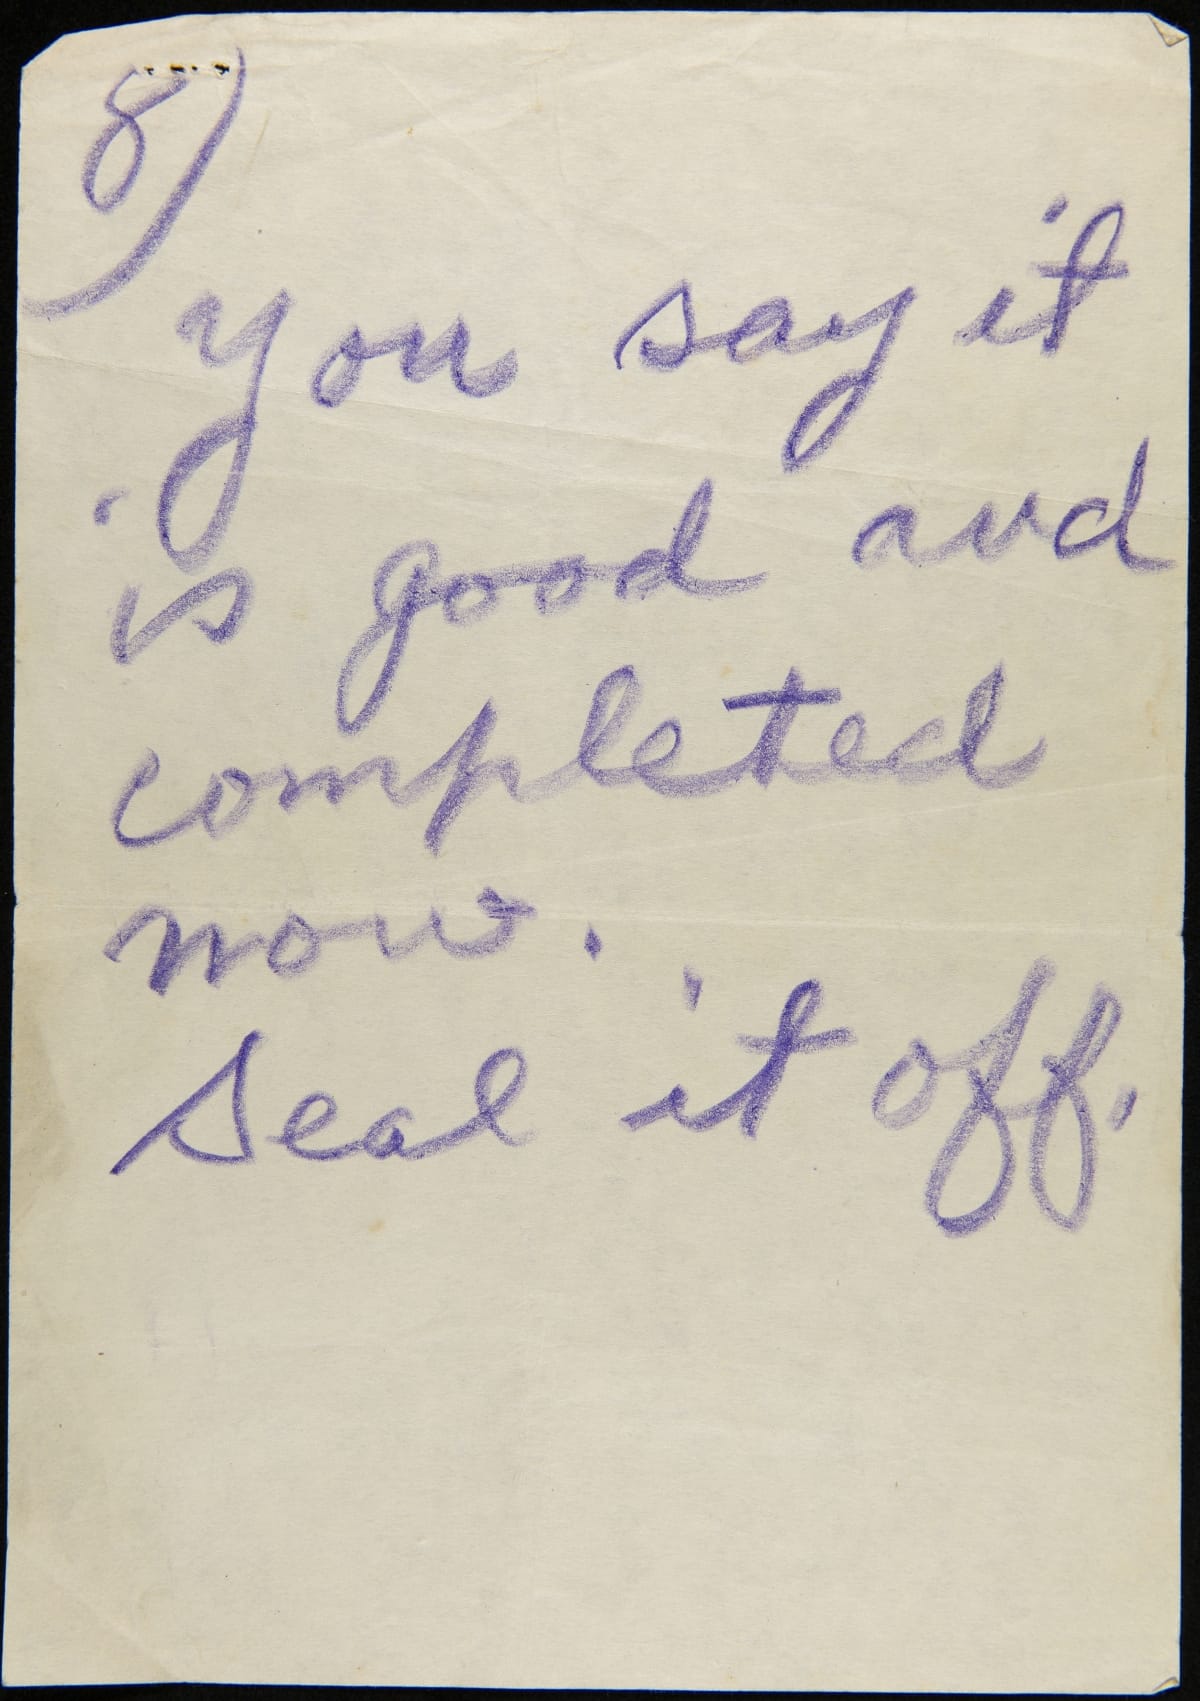 8)
you say it
is good and
completed
now.
Seal it off.